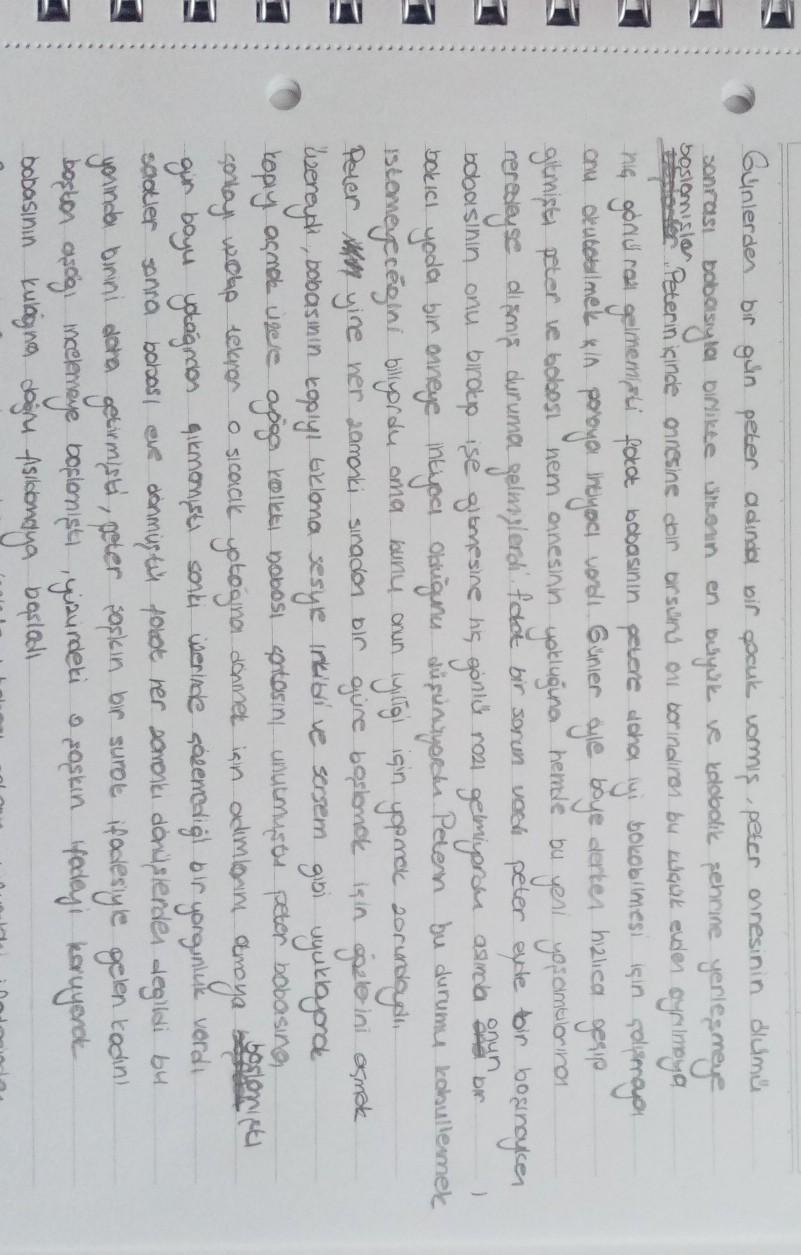 Günlerden bir gün peter adında bir çocuk varmış, peter annesinin ölümü
sonrası babasıyla birlikte ülkenin en büyük ve kalabalık şehrine yerleşmeye
başlamışlar. Peterin içinde annesine dair onu barındıran bu küçük evden ayrılmaya
hiç gönlü razı gelmemişti fakat babasının petere daha iyi bakabilmesi için çalışmaya
onu okutabilmek için paraya ihtiyacı vardı. Günler öyle böyle derken hızlıca geçip
gitmişti peter ve babası hem annesinin yokluğuna hemde bu yeni yaşamıtlarına
neredeyse alışmış duruma gelmişlerdi. fakat bir sorun vardı peter evde bir başınayken
babasının onu bırakıp işe gitmesine hiç gönlü razı gelmiyordu aslında onun bir
bakıcı yada bir anneye ihtiyacı olduğunu düşünüyordu. Peterin bu durumu kabullenmek
istemeyeceğini biliyordu ama bunu onun iyiliği için yapmak zorundaydı.
Peter yine her zamanki sıradan bir güne başlamak için gözlerini açmak
üzereydi, babasının kapıyı tıklama sesiyle irkildi ve sersem gibi uyuklayarak
kapıyı açmak üzere ayağa kalktı babası çantasını unutmuştu peter babasına
çantayı verip tekrar o sıcacık yatağına dönmek için adımlarını atmaya başlamıştı
gün boyu yatağından çıkmamıştı sanki üzerinde çözemediği bir yorgunluk vardı
saatler sonra babası eve dönmüştü fakat her zamanki dönüşlerden değildi bu
yanında birini daha getirmişti, peter şaşkın bir surat ifadesiyle gelen kadını
baştan aşağı incelemeye başlamıştı, yüzündeki o şaşkın ifadeyi koruyarak
babasının kulağına doğru fısıldamaya başladı